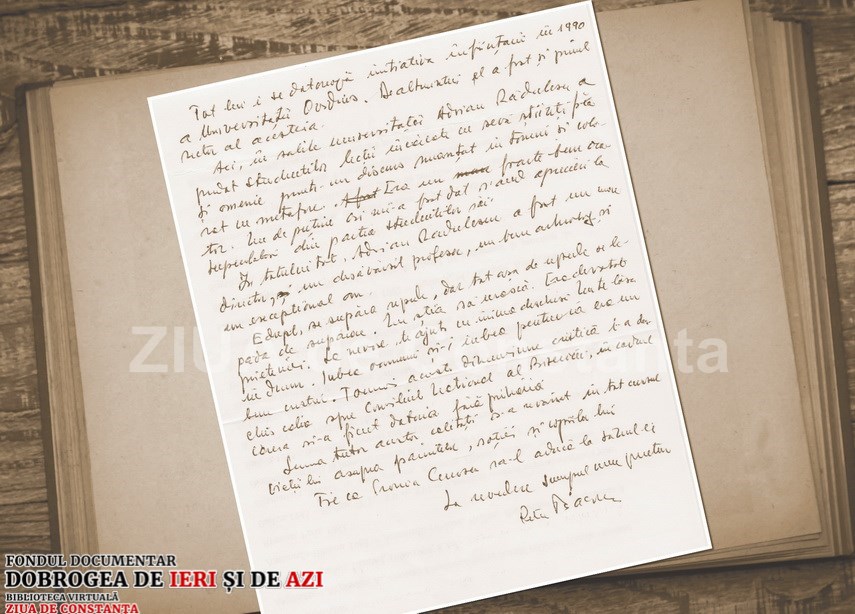 Tot lui i se datorează inițiativa înființării în 1990
a Universității Ovidius. De altminteri el a fost și primul
rector al acesteia.
Aci, în salile universității Adrian Rădulescu a
predat studenților lecții încărcate cu sevă științifică
și omenie printr-un discurs nuanțat în tonuri și colo-
rat cu metafore. A fost Era un foarte bun ora-
tor. Nu de puține ori mi-a fost dat să aud aprecieri la
superlativ din partea studenților săi.
În totalitate, Adrian Rădulescu a fost un mare
director, un desăvârșit profesor, un bun arheolog și
un exceptional om.
se supăra repede, dar tot așa de repede se le-
păda de supărare. Nu știa să urască. Era devotat
prieteniei. La nevoie te ajuta cu inima deschisă. Nu te lăsa
în drum. Iubea oamenii și-i iubea pentru că era un
bun creștin. Tocmai această dimensiune l-a des-
chis calea spre Consiliul Național al Bisericii, în cadrul
căruia și-a făcut datoria fără prihană.
Suma tutor acestor calități s-a revărsat în tot cursul
vieții lui asupra părinților, soției și copiilor lui
Fie ca Cronica să-l aducă la sânul ei
La revedere scumpul meu prieten
Petre Diaconu
ZIUA de Constanta
FONDUL DOCUMENTAR
DOBROGEA DE IERI ȘI DE AZI
BIBLIOTECA VIRTUALĂ
ZIUA DE CONSTANȚA